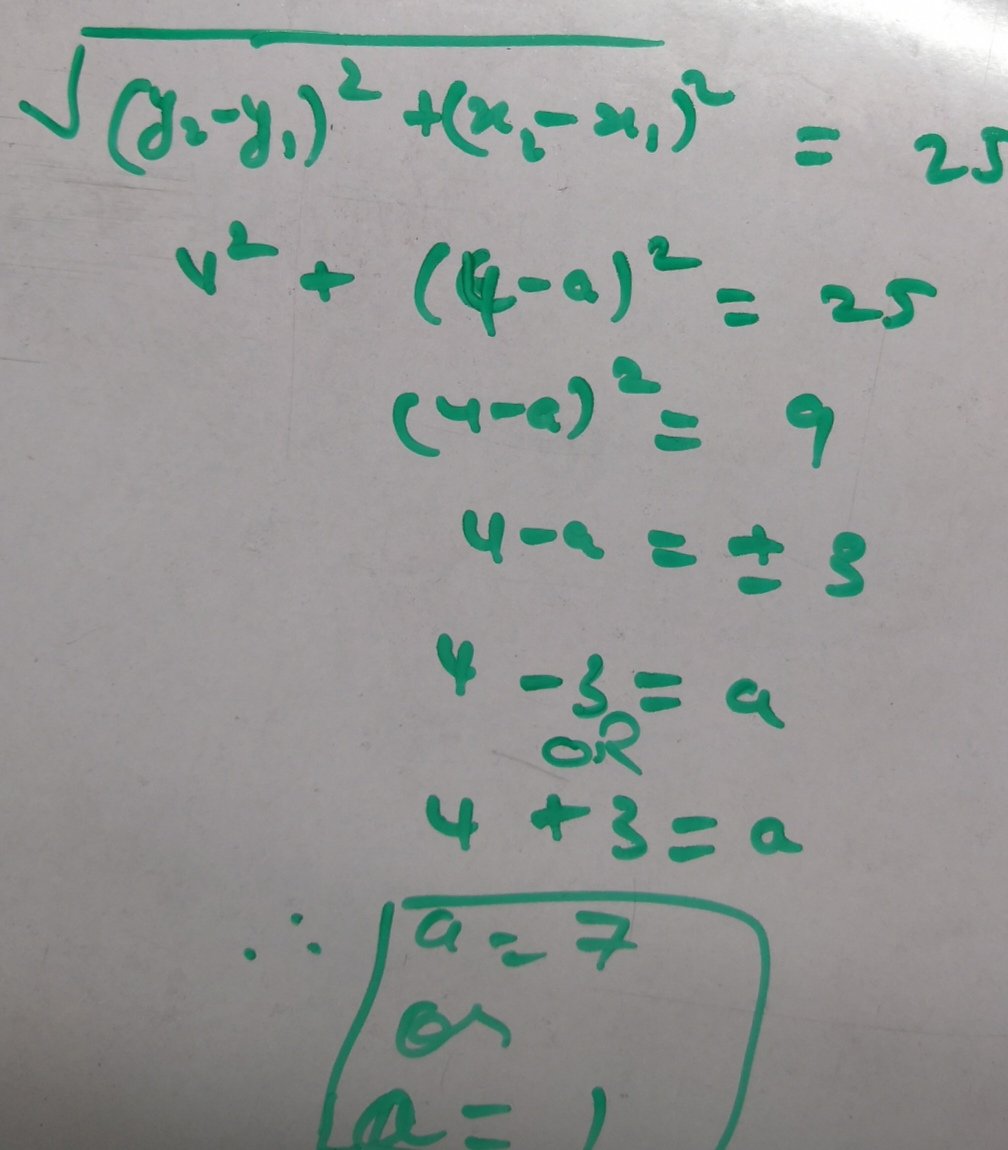 √(y₂-y₁)² +(x₂-x₁)² = 25
4² + (4-a)² = 25
(4-a)² = 9
4-a = ± 3
4 - 3 = a
OR
4 + 3 = a
∴ a = 7
or
a = 1